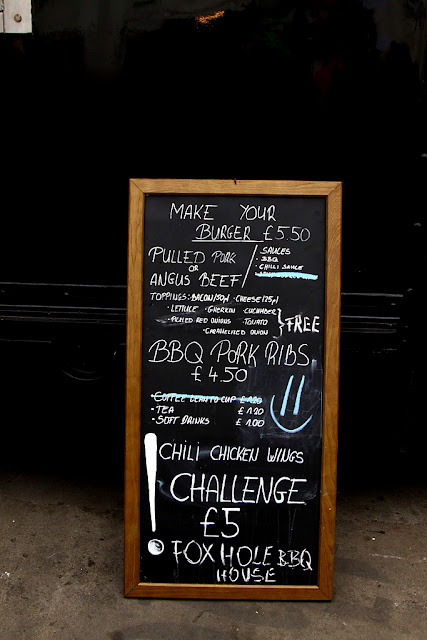 MAKE YOUR
BURGER £5.50
PULLED PORK
OR
ANGUS BEEF
SAUCES
- BBQ
- CHILLI SAUCE
TOPPINGS: BACON/50p · CHEESE/75p
· LETTUCE · GHERKIN CUCUMBER
· PICKLED RED ONIONS · TOMATO
· CARAMELISED ONION
} FREE
BBQ PORK RIBS
£4.50
COFFEE CUP £1.20
- TEA £1.20
- SOFT DRINKS £1.00
CHILI CHICKEN WINGS
CHALLENGE
£5
FOX HOLE BBQ
HOUSE